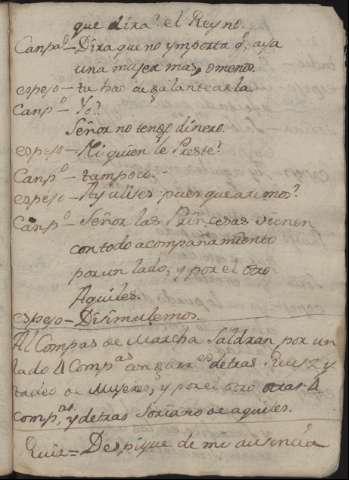 que dirá el Reyno.
Canp.º – Dira que no ymporta q.e aya
una mujer mas, o menos.
espejo – tu has de galantearla
Canp.º – Yo?
Señor no tengo dinero.
espejo – Ni quien te Preste?
Canp.º – tampoco.
espejo – Ay ulises pues que aremos?
Canp.º – Señor las Princesas vienen
con todo acompañamiento
por un lado, y por el otro
Aquiles.
espejo – Disimulemos.
Al Compas de Marcha Saldran por un
lado 4 Comp.as con detras Ruiz y
de Mujeres, y por el otro otras 4
comp.as, y detras Soriano de aquiles.
Ruiz = Despique de mi ausencia